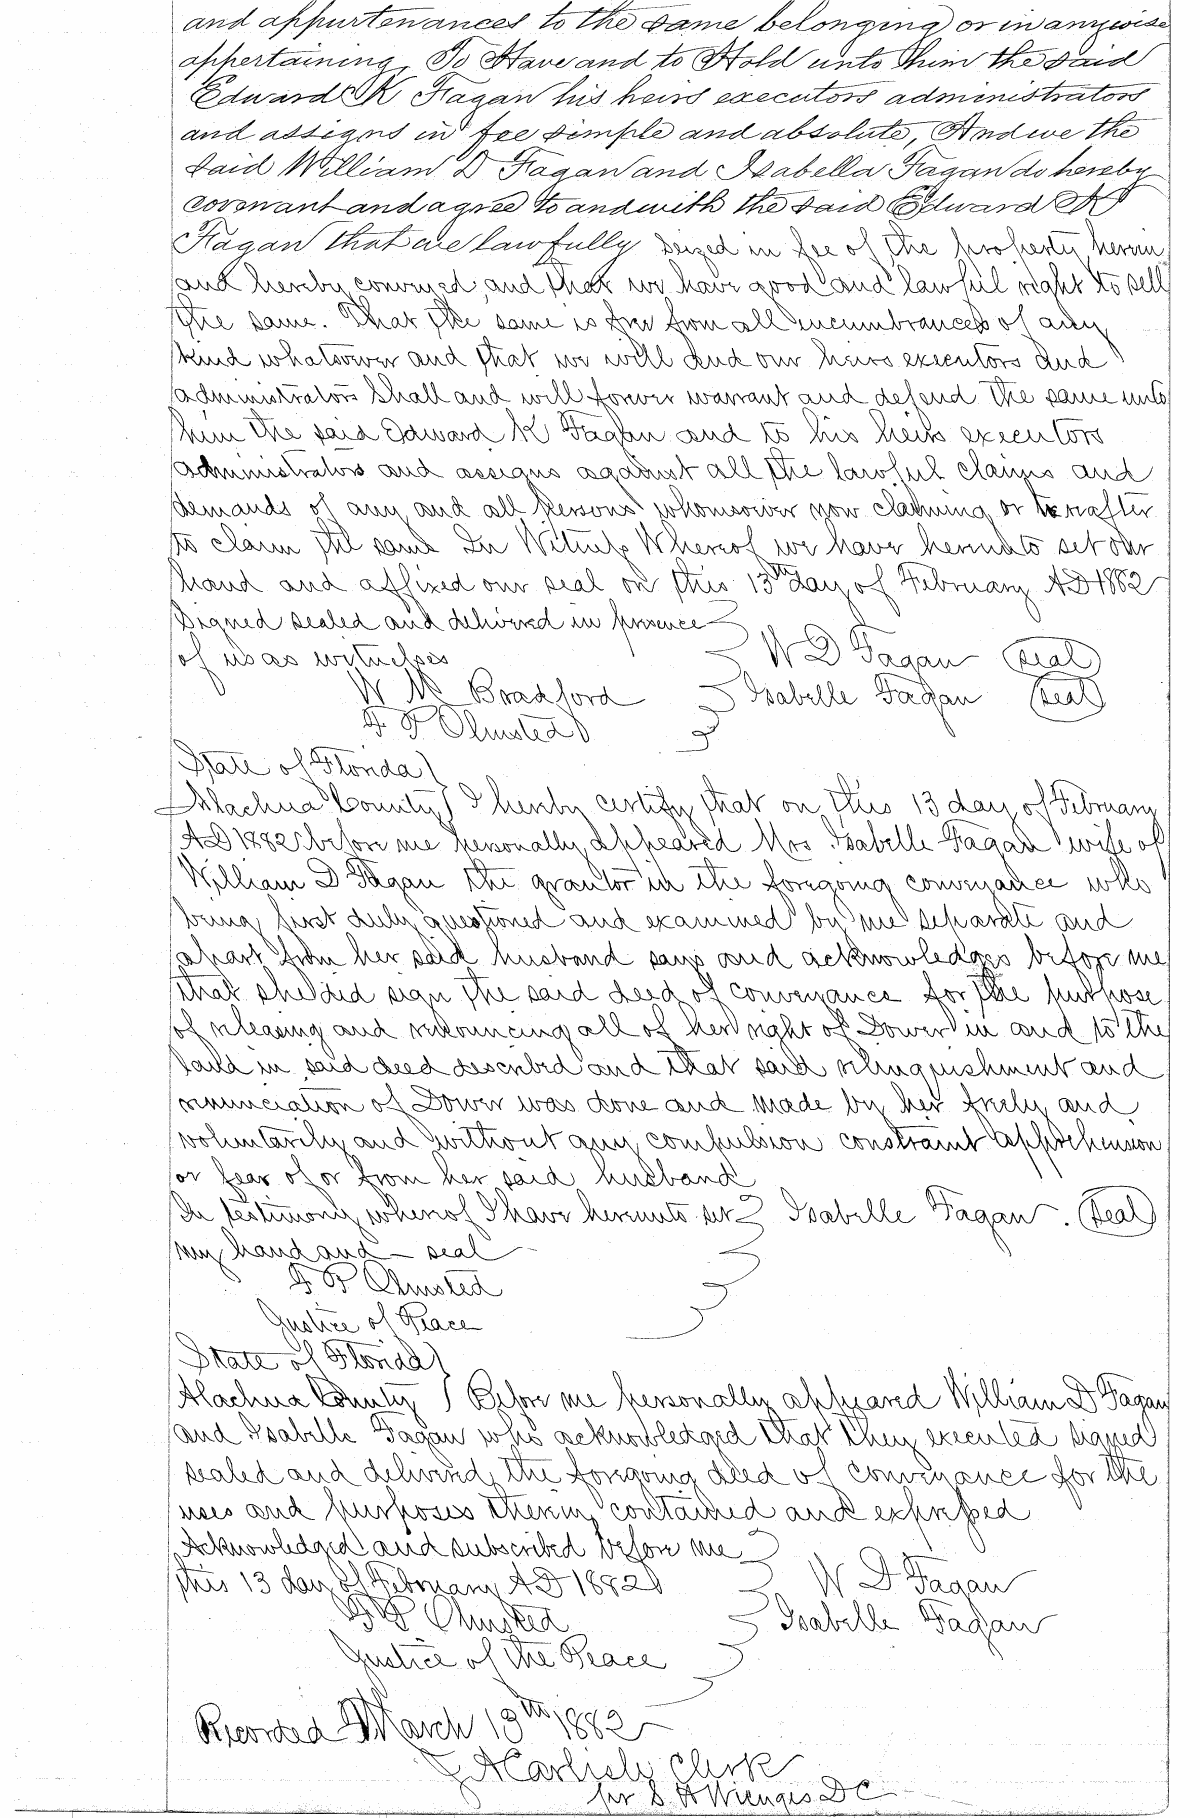 and appurtenances to the same belonging or in anywise
appertaining, To Have and to Hold unto him the said
Edward K Fagan his heirs executors administrators
and assigns in fee simple and absolute, And we the
said William D Fagan and Isabella Fagan do hereby
covenant and agree to and with the said Edward K
Fagan that we lawfully seized in fee of the property herein
and hereby conveyed, and that we have good and lawful right to sell
the same. That the same is free from all incumbrances of any
kind whatsoever and that we will and our heirs executors and
administrators shall and will forever warrant and defend the same unto
him the said Edward K Fagan and to his heirs executors
administrators and assigns against all the lawful claims and
demands of any and all persons whomsoever now claiming or hereafter
to claim the same In Witness Whereof we have hereunto set our
hand and affixed our seal on this 13th day of February AD 1882
Signed sealed and delivered in presence
of us as witnesses W D Fagan (seal)
W M Bradford Isabelle Fagan (seal)
F P Olmsted
State of Florida }
Alachua County } I hereby certify that on this 13 day of February
AD 1882 before me personally appeared Mrs Isabelle Fagan wife of
William D Fagan the grantor in the foregoing conveyance who
being first duly questioned and examined by me separate and
apart from her said husband says and acknowledges before me
that she did sign the said deed of conveyance for the purpose
of releasing and renouncing all of her right of Dower in and to the
land in said deed described and that said relinquishment and
renunciation of Dower was done and made by her freely and
voluntarily and without any compulsion constraint apprehension
or fear of or from her said husband
In testimony whereof I have hereunto set Isabelle Fagan. (seal)
my hand and - seal
F P Olmsted
Justice of Peace
State of Florida }
Alachua County } Before me personally appeared William D Fagan
and Isabelle Fagan who acknowledged that they executed signed
sealed and delivered, the foregoing deed of conveyance for the
uses and purposes therein contained and expressed
Acknowledged and subscribed before me
this 13 day of February AD 1882 W D Fagan
F P Olmsted Isabelle Fagan
Justice of the Peace
Recorded March 13th 1882
J A Carlisle Clerk
per S H Wienges DC